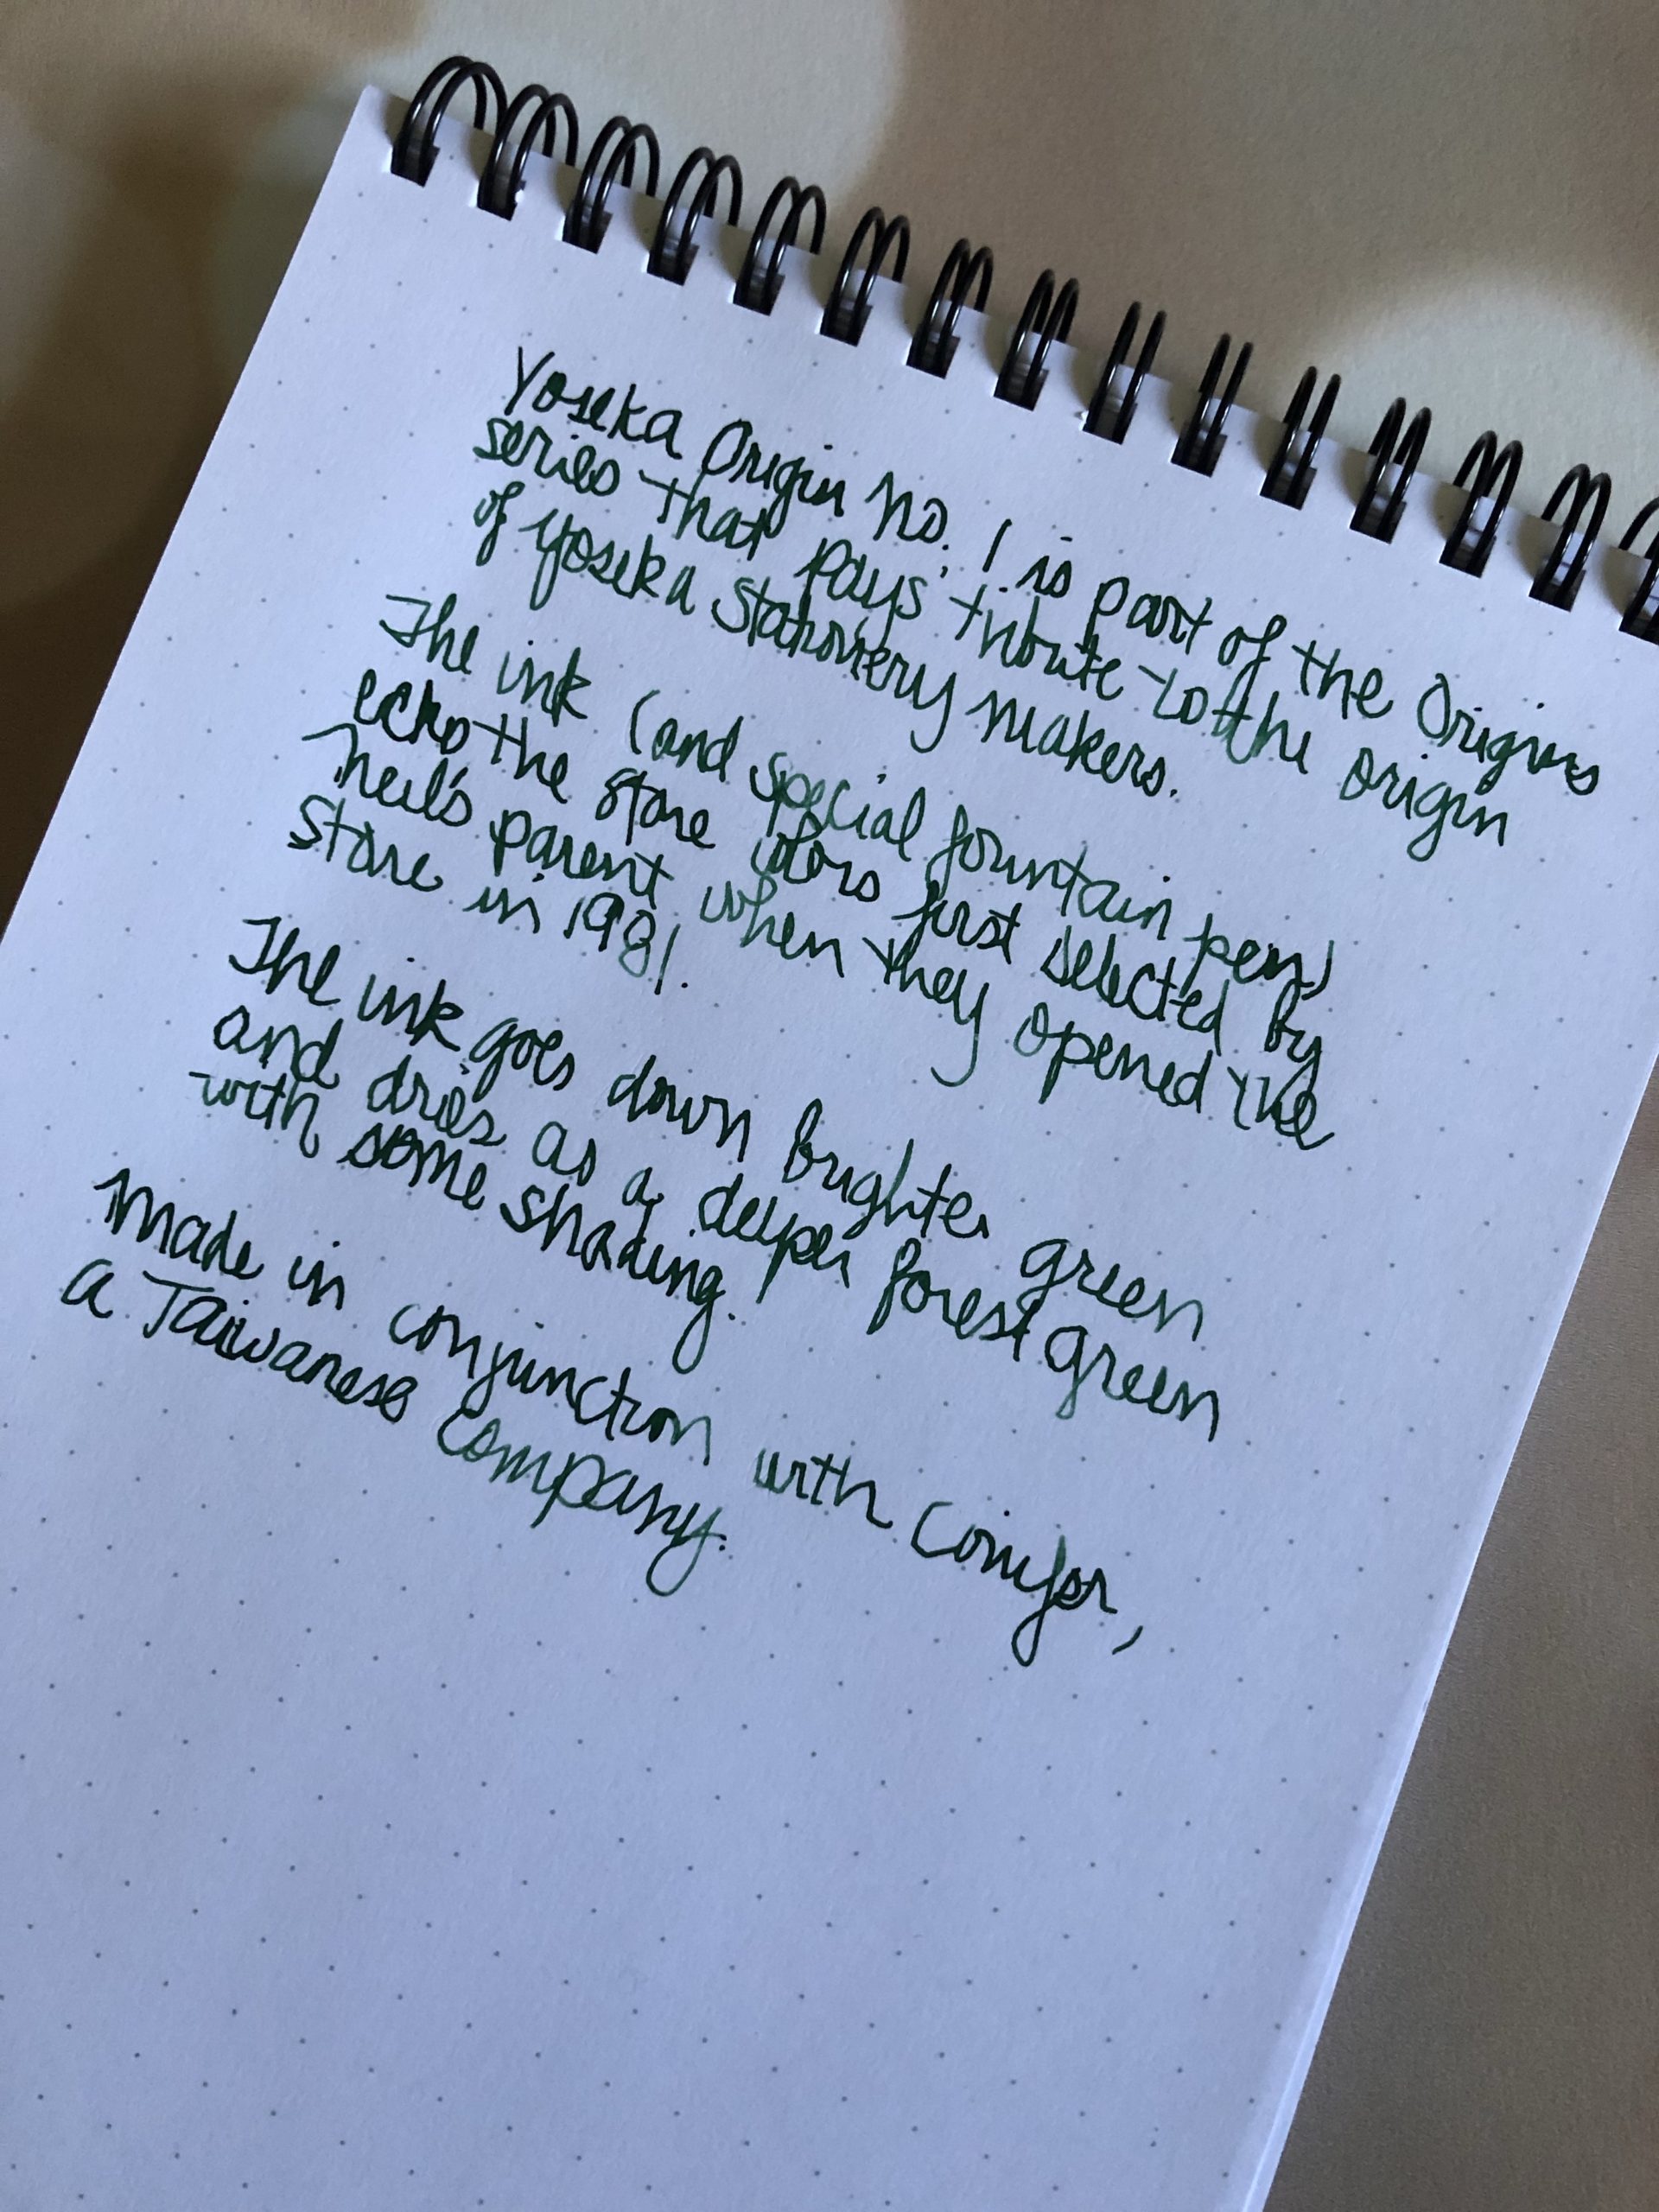 Yoseka Origin No. 1 is part of the Origins
series that pays tribute to the origin
of Yoseka Stationery makers.
The ink (and special fountain pen)
echo the store colors first selected by
Neil's parent when they opened the
store in 1981.
The ink goes down brighter green
and dries as a deeper forest green
with some shading.
Made in conjunction with Conifer,
a Taiwanese company.